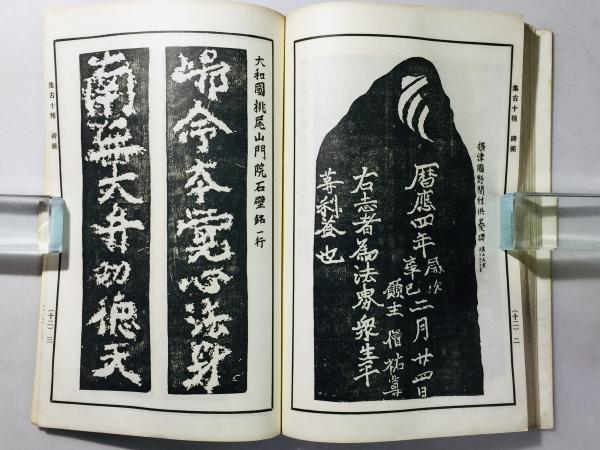 集古十種 碑銘
摂津國野間村供養碑
暦應四年歳次辛巳二月廿四日
願主 僧祐尊
右志者為法界衆生平
等利益也
(十二) 二
大和國桃尾山門院石壁銘一行
帰命本覚心法身
南無大弁功徳天
集古十種 碑銘
(十二) 三